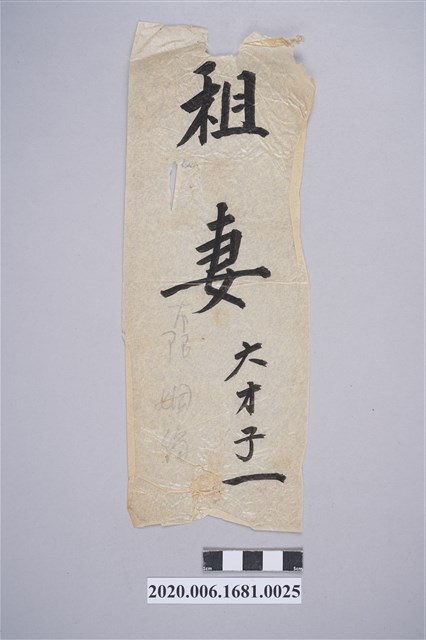 租妻
大才子一
限 姻緣
2020.006.1681.0025